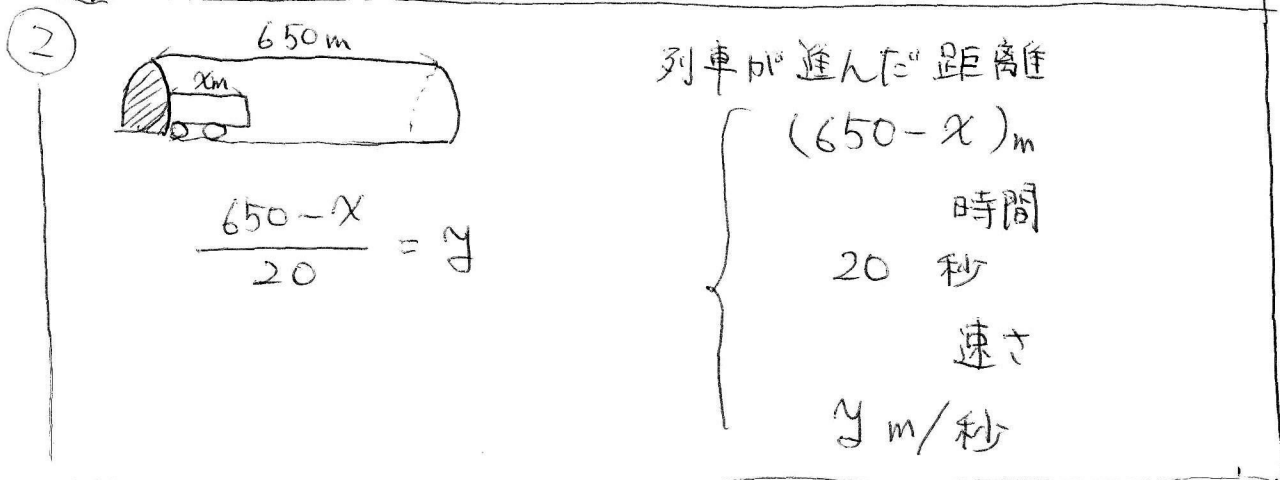 ②
650m
xm
650-x
―――― = y
20
列車が進んだ距離
(650-x)m
時間
20 秒
速さ
y m/秒